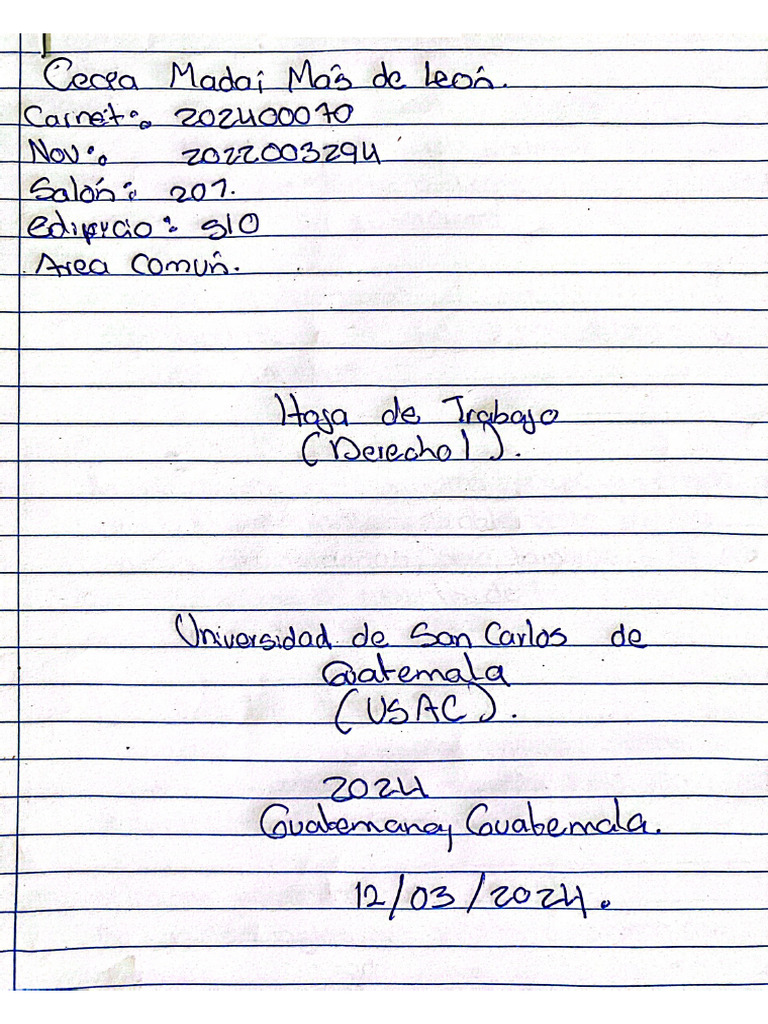 Madaí Más de León.
Carnet: 202400070
Nov: 2022003294
Salón: 207.
edificio: S10
Area Común.
Hoja de Trabajo
(Derecho I).
Universidad de San Carlos de
Guatemala
(USAC).
2024
Guatemana, Guatemala.
12/03/2024.